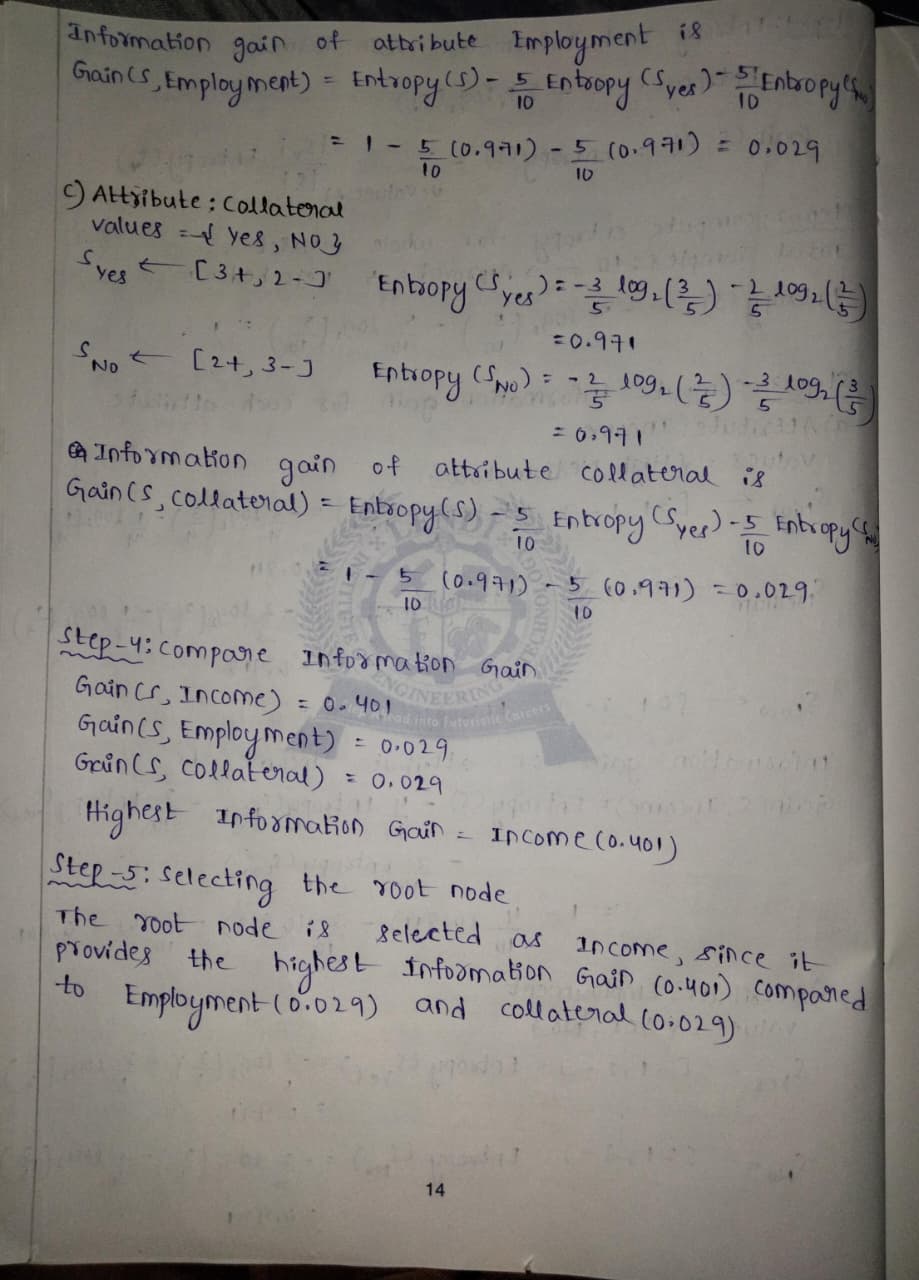 Information gain of attribute Employment is
Gain(S, Employment) = Entropy(S) - 5/10 Entropy (S_yes) - 5/10 Entropy(S_No)
= 1 - 5/10 (0.971) - 5/10 (0.971) = 0.029
c) Attribute : Collateral
values = { Yes, NO }
S_Yes ← [3+, 2-] Entropy (S_yes) = -3/5 log₂(3/5) - 2/5 log₂(2/5)
= 0.971
S_NO ← [2+, 3-] Entropy (S_NO) = -2/5 log₂(2/5) - 3/5 log₂(3/5)
= 0.971
Information gain of attribute collateral is
Gain(S, collateral) = Entropy(S) - 5/10 Entropy (S_yes) - 5/10 Entropy(S_No)
= 1 - 5/10 (0.971) - 5/10 (0.971) = 0.029.
Step-4: Compare Information Gain
Gain(S, Income) = 0.401
Gain(S, Employment) = 0.029
Gain(S, collateral) = 0.029
Highest Information Gain = Income (0.401)
Step-5: Selecting the root node
The root node is selected as Income, since it
provides the highest Information Gain (0.401) compared
to Employment (0.029) and collateral (0.029)
ENGINEERING
into Futuristic Careers
14